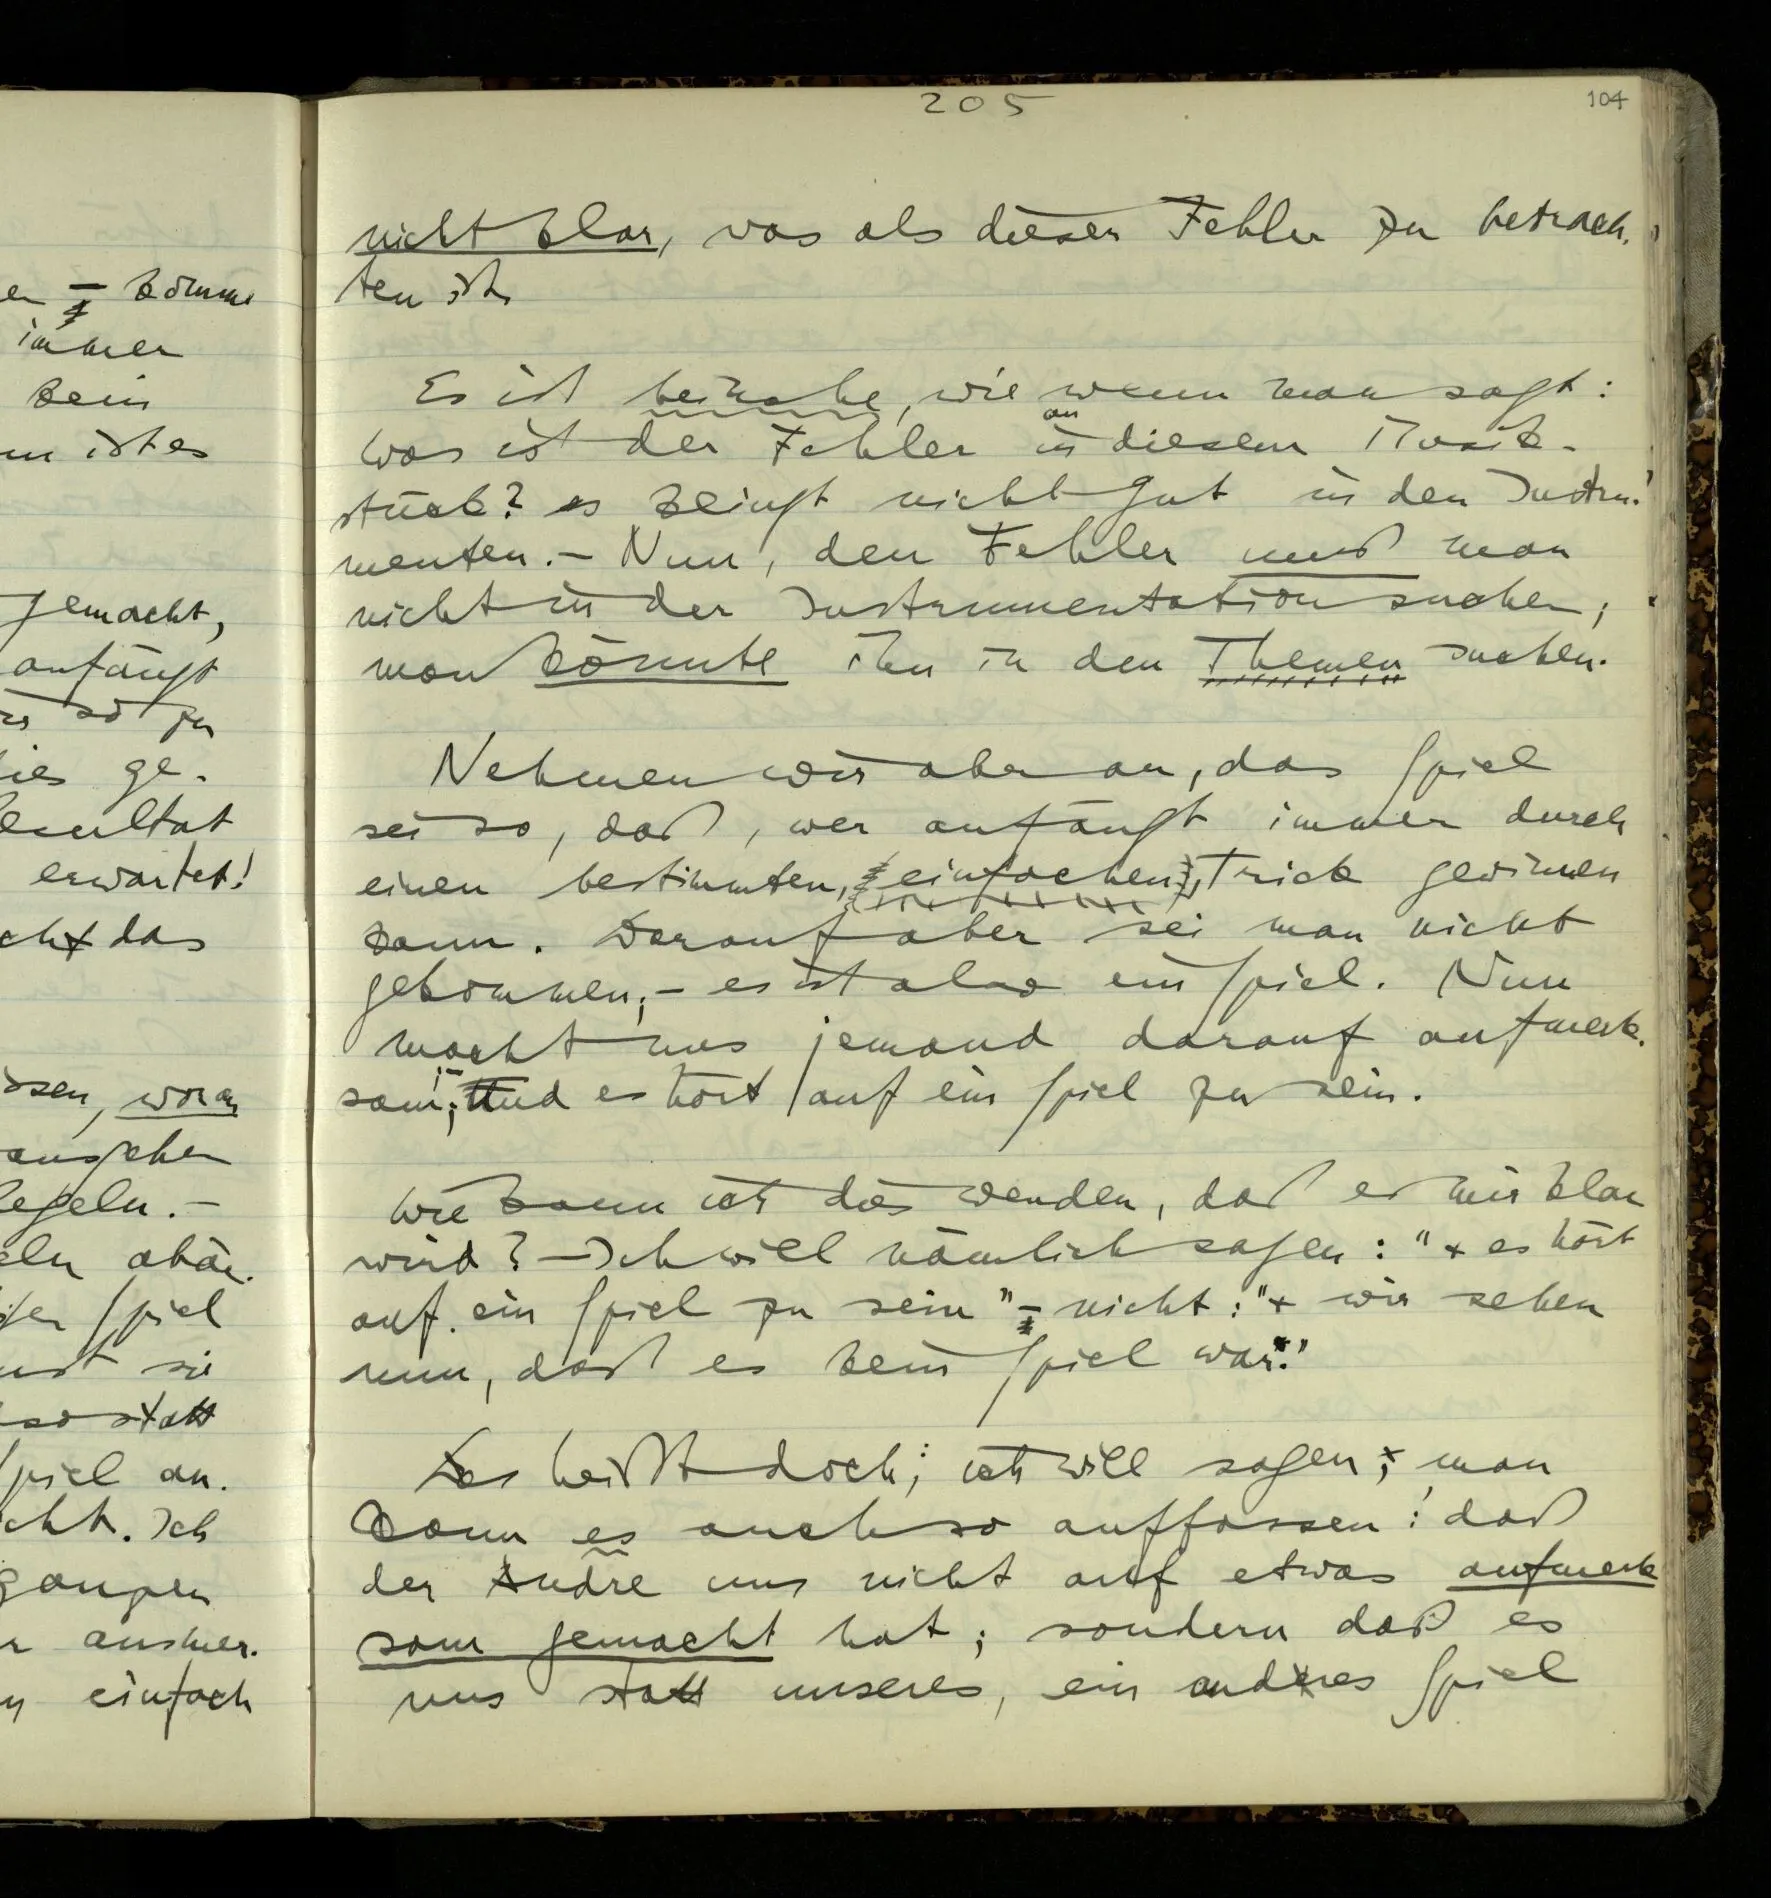 205
104
nicht klar, was als dieser Fehler zu betrach-
ten ist.
Es ist beinahe, wie wenn man sagt:
Was ist der Fehler an in diesem Musik-
stück? es klingt nicht gut in den Instru-
menten. – Nun, den Fehler muß man
nicht in der Instrumentation suchen;
man könnte ihn in den Themen suchen.
Nehmen wir aber an, das Spiel
sei so, daß, wer anfängt immer durch
einen bestimmten, einfachen, Trick gewinnen
kann. Darauf aber sei man nicht
gekommen; – es ist also ein Spiel. Nun
macht uns jemand darauf aufmerk-
sam; – und es hört auf ein Spiel zu sein.
Wie kann ich das wenden, daß es mir klar
wird? – Ich will nämlich sagen: "es hört
auf ein Spiel zu sein" – nicht: "wir sehen
nun, daß es kein Spiel war."
Das heißt doch, ich will sagen, man
kann es auch so auffassen: daß
der Andre uns nicht auf etwas aufmerk
sam gemacht hat; sondern daß es
uns statt unseres, ein anderes Spiel
en – könne
immer
kein
nn ist es
gemacht,
anfängt
so zu
dies ge-
Resultat
erwartet!
cht das
ssen, woran
ansehen
Regeln. –
eln abän-
ser Spiel
nst sie
so statt
Spiel an.
cht. Ich
ganzen
r ausmer-
n einfach